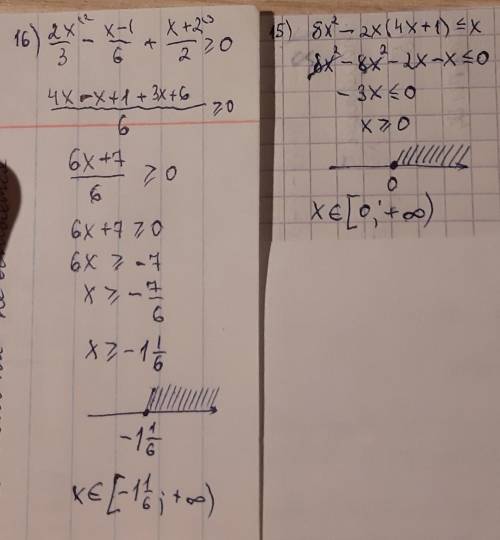 16) 2x/3 - x-1/6 + x+2/2 ≥ 0
4x - x+1 + 3x+6 / 6 ≥ 0
6x+7 / 6 ≥ 0
6x+7 ≥ 0
6x ≥ -7
x ≥ - 7/6
x ≥ -1 1/6
-1 1/6
x ∈ [-1 1/6 ; +∞)
15) 8x² - 2x(4x+1) ≤ x
8x² - 8x² - 2x - x ≤ 0
- 3x ≤ 0
x ≥ 0
0
x ∈ [0 ; +∞)